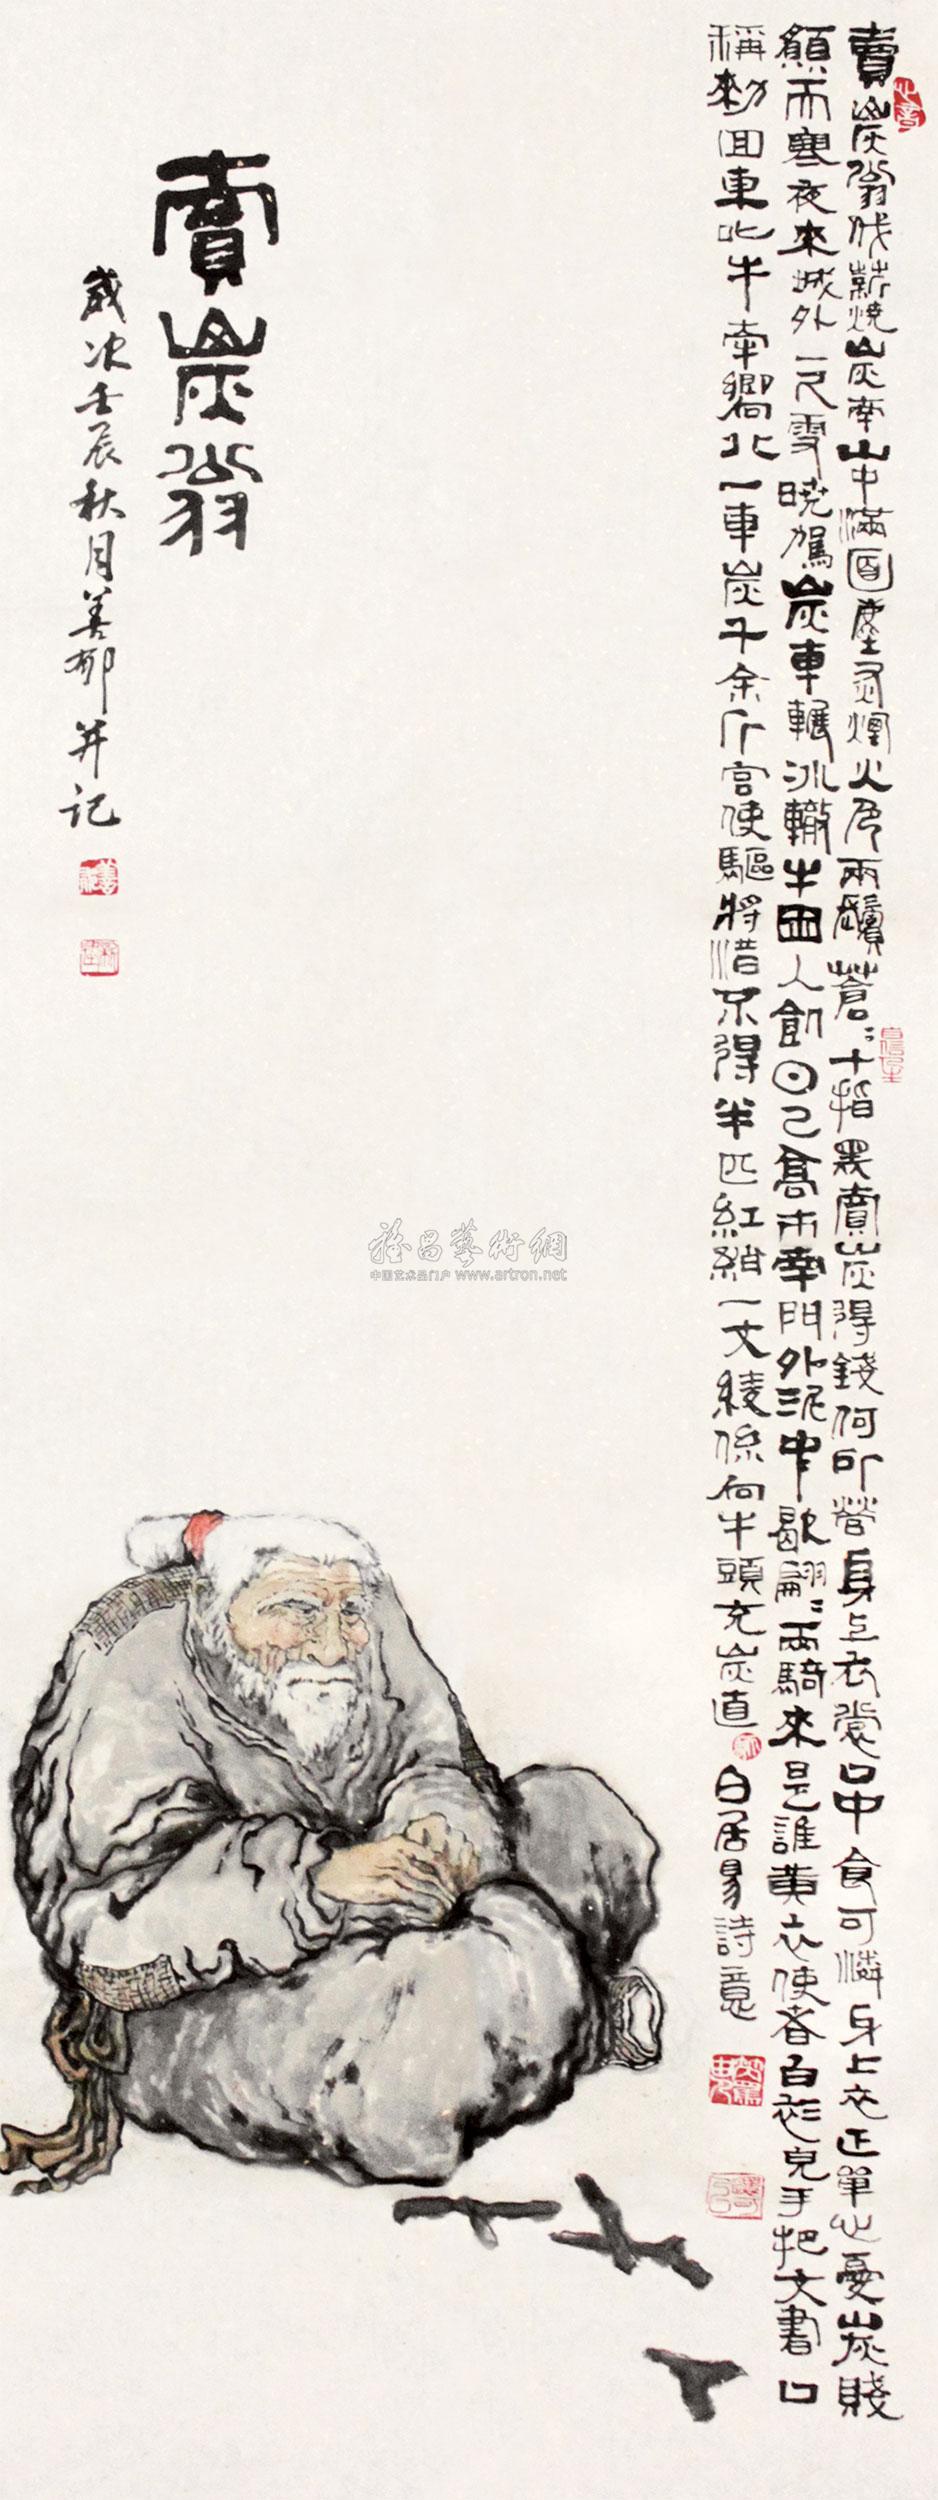 賣炭翁伐薪燒炭南山中滿面塵灰煙火色兩鬢蒼々十指黑賣炭得錢何所營身上衣裳口中食可憐身上衣正單心憂炭賤
願天寒夜來城外一尺雪曉駕炭車輾冰轍牛困人飢日已高市南門外泥中歇翩々兩騎來是誰黃衣使者白衫兒手把文書口
稱敕回車叱牛牽嚮北一車炭千余斤宮使驅將惜不得半匹紅綃一丈綾係向牛頭充炭直 白居易詩意
賣炭翁
歲次壬辰秋月 并记
雅昌藝術網
中国艺术品门户 www.artron.net